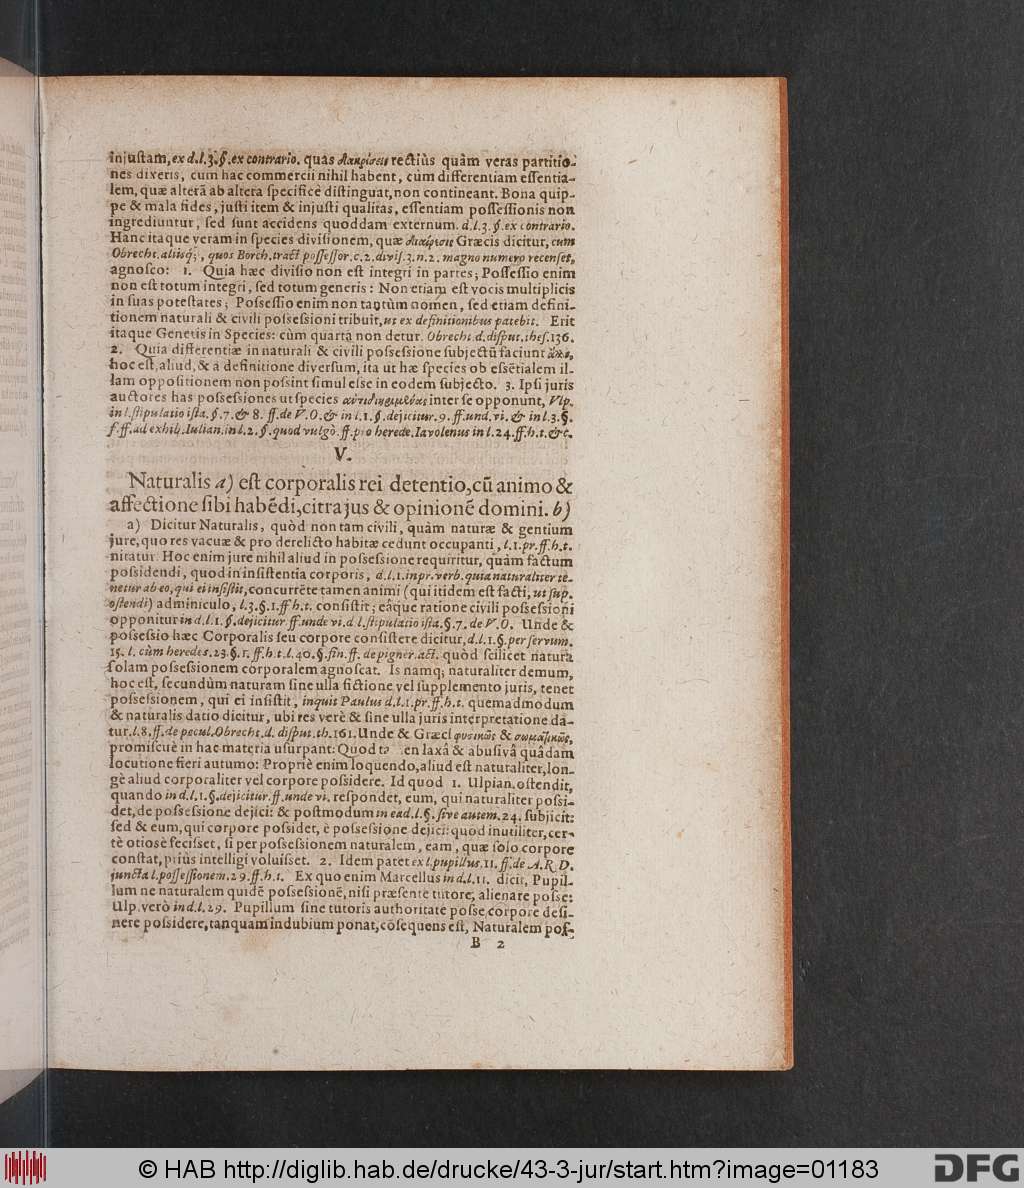 injuſtam, ex d.l.3.§.ex contrario. quas διακρίσεις rectiùs quàm veras partitio-
nes dixeris, cum hac commercii nihil habent, cùm differentiam eſſentia-
lem, quæ alterã ab altera ſpecificè diſtinguat, non contineant. Bona quip-
pe & mala fides, juſti item & injuſti qualitas, eſſentiam poſſeſſionis non
ingrediuntur, ſed ſunt accidens quoddam externum. d.l.3.§.ex contrario.
Hanc itaque veram in ſpecies diviſionem, quæ διαίρεσις Græcis dicitur, cum
Obrecht. aliisq́;, quos Borch. tract poſſeſſor.c.2.diviſ.3.n.2. magno numero recenſet,
agnoſco: 1. Quia hæc diviſio non eſt integri in partes; Poſſeſſio enim
non eſt totum integri, ſed totum generis: Non etiam eſt vocis multiplicis
in ſuas poteſtates; Poſseſſio enim non tantùm nomen, ſed etiam defini-
tionem naturali & civili poſseſsioni tribuit, ut ex definitionibus patebit. Erit
itaque Generis in Species: cùm quarta non detur. Obrecht.d.diſput.theſ.136.
2. Quia differentiæ in naturali & civili poſseſsione ſubjectũ faciunt
hoc eſt, aliud, & a definitione diverſum, ita ut hæ ſpecies ob eſsẽtialem il-
lam oppoſitionem non poſsint ſimul eſse in eodem ſubjecto. 3. Ipſi juris
auctores has poſseſsiones ut ſpecies inter ſe opponunt, Vlp.
in l.ſtipulatio iſta.§.7.& 8. ff.de V.O.& in l.1.§.dejicitur.9.ff.und.vi.& in l.3.§.
f.ff.ad exhib. Iulian.in l.2.§.quod vulgò.ff.pro herede. Iavolenus in l.24.ff.h.t.&c.
V.
Naturalis a) eſt corporalis rei detentio, cũ animo &
affectione ſibi habẽdi, citra jus & opinionẽ domini. b)
a) Dicitur Naturalis, quòd non tam civili, quàm naturæ & gentium
jure, quo res vacuæ & pro derelicto habitæ cedunt occupanti, l.1.pr.ff.h.t.
nitatur. Hoc enim jure nihil aliud in poſseſsione requiritur, quàm factum
poſsidendi, quod in inſiſtentia corporis, d.l.1.in pr.verb.quia naturaliter te-
netur ab eo, qui ei inſiſtit, concurrẽte tamen animi (qui itidem eſt facti, ut ſup.
oſtendi) adminiculo, l.3.§.1.ff h.t. conſiſtit; eâque ratione civili poſseſsioni
opponitur in d.l.1.§.dejicitur.ff.unde vi. d l.ſtipulatio iſta.§.7. de V.O. Unde &
poſseſsio hæc Corporalis ſeu corpore conſiſtere dicitur, d.l.1.§.per ſervum.
15. l. cùm heredes.23.§.1.ff.h.t.l.40.§.fin.ff. de pigner.act. quòd ſcilicet natura
ſolam poſseſsionem corporalem agnoſcat. Is namq; naturaliter demum,
hoc eſt, ſecundùm naturam ſine ulla fictione vel ſupplemento juris, tenet
poſseſsionem, qui ei inſiſtit, inquit Paulus d.l.1.pr.ff.h.t. quemadmodum
& naturalis datio dicitur, ubi res verè & ſine ulla juris interpretatione da-
tur. l.8.ff.de pecul. Obrecht.d. diſput.th.161. Unde & Græci φυσικῶς & σωματικῶς,
promiſcuè in hac materia uſurpant: Quod en laxâ & abuſivâ quâdam
locutione fieri autumo: Propriè enim loquendo, aliud eſt naturaliter, lon-
gè aliud corporaliter vel corpore poſsidere. Id quod 1. Ulpian. oſtendit,
quando in d.l.1.§.dejicitur.ff.unde vi. reſpondet, eum, qui naturaliter poſsi-
det, de poſseſsione dejici: & poſtmodum in ead.l.§.ſive autem.24. ſubjicit:
ſed & eum, qui corpore poſsidet, è poſseſsione dejici: quod inutiliter, cer-
tè otiosè feciſset, ſi per poſseſsionem naturalem, eam, quæ ſolo corpore
conſtat, priùs intelligi voluiſset. 2. Idem patet ex l.pupillus.11.ff.de A.R.D.
juncta l.poſſeſſionem.29.ff.h.t. Ex quo enim Marcellus in d.l.11. dicit, Pupil-
lum ne naturalem quidẽ poſseſsionẽ, niſi præſente tutore, alienare poſse:
Ulp. verò in d.l.29. Pupillum ſine tutoris authoritate poſse corpore deſi-
nere poſsidere, tanquam indubium ponat, cõſequens eſt, Naturalem poſ-
B 2
© HAB http://diglib.hab.de/drucke/43-3-jur/start.htm?image=01183
DFG